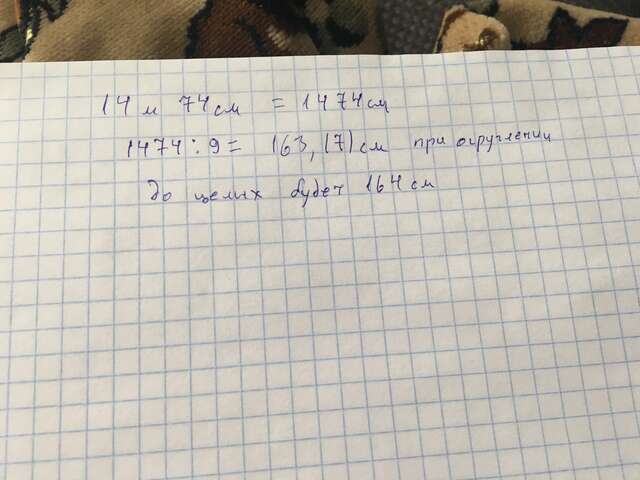 14 м 74 см = 1474 см
1474 : 9 = 163,(7) см при округлении
до целых будет 164 см